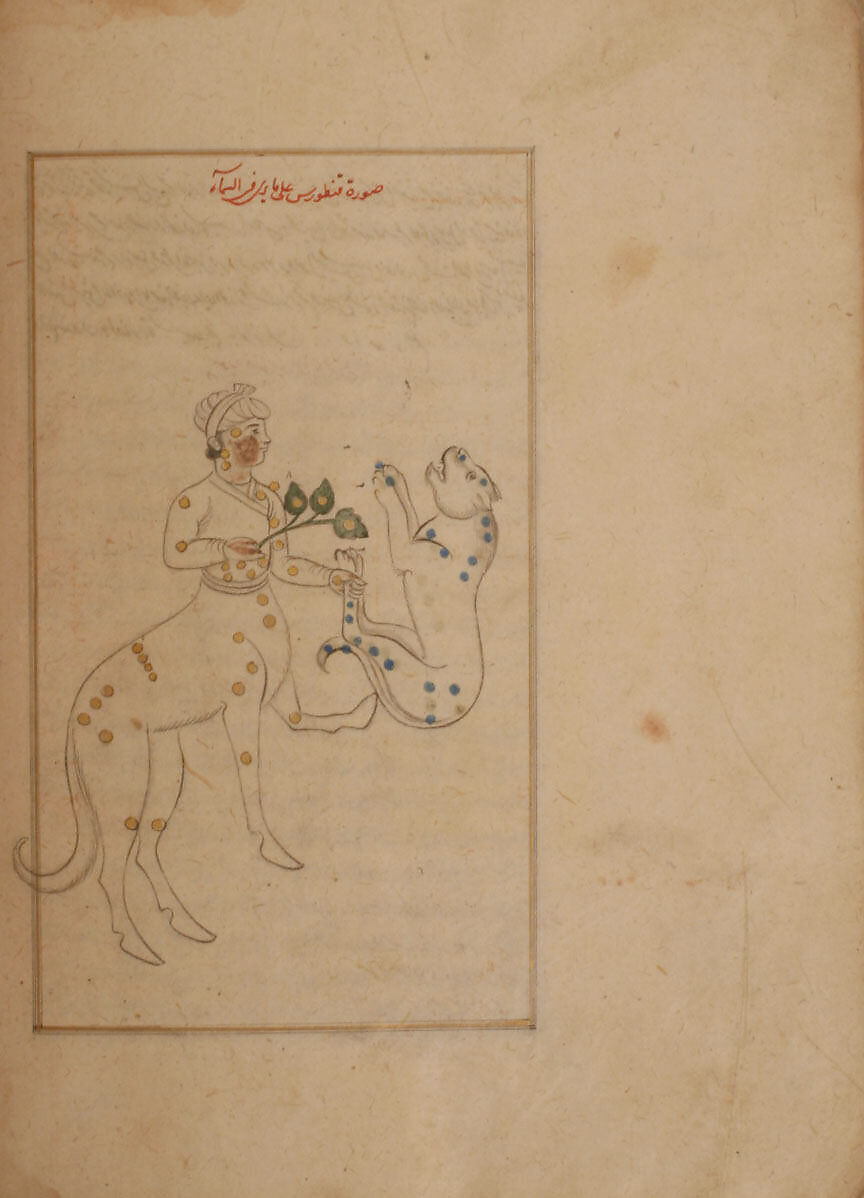 صورة قنطورس على ما يرى في السماء